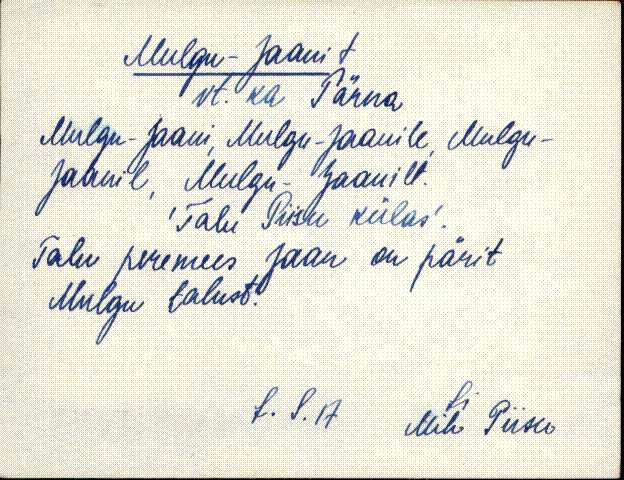 Mulgu-Jaani t
vt. ka Pärna
Mulgu-Jaani, Mulgu-Jaanile, Mulgu-
Jaanil, Mulgu-Jaanilt.
'Talu Piisu külas'.
Talu peremees Jaan on pärit
Mulgu talust.
L. S. 17
Mih Piisu